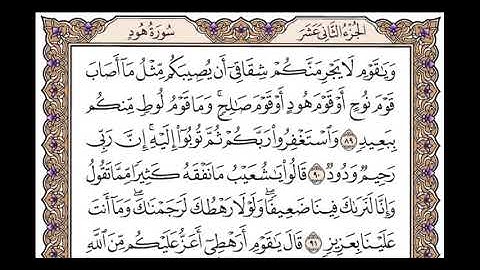 الجزء الثاني عشر
سورة هود
وَيَٰقَوْمِ لَا يَجْرِمَنَّكُمْ شِقَاقِىٓ أَن يُصِيبَكُم مِّثْلُ مَآ أَصَابَ
قَوْمَ نُوحٍ أَوْ قَوْمَ هُودٍ أَوْ قَوْمَ صَٰلِحٍ ۚ وَمَا قَوْمُ لُوطٍ مِّنكُم
بِبَعِيدٍ ٨٩ وَٱسْتَغْفِرُوا۟ رَبَّكُمْ ثُمَّ تُوبُوٓا۟ إِلَيْهِ ۚ إِنَّ رَبِّى
رَحِيمٌ وَدُودٌ ٩٠ قَالُوا۟ يَٰشُعَيْبُ مَا نَفْقَهُ كَثِيرًا مِّمَّا تَقُولُ
وَإِنَّا لَنَرَىٰكَ فِينَا ضَعِيفًا ۖ وَلَوْلَا رَهْطُكَ لَرَجَمْنَٰكَ ۖ وَمَآ أَنتَ
عَلَيْنَا بِعَزِيزٍ ٩١ قَالَ يَٰقَوْمِ أَرَهْطِىٓ أَعَزُّ عَلَيْكُم مِّنَ ٱللَّهِ